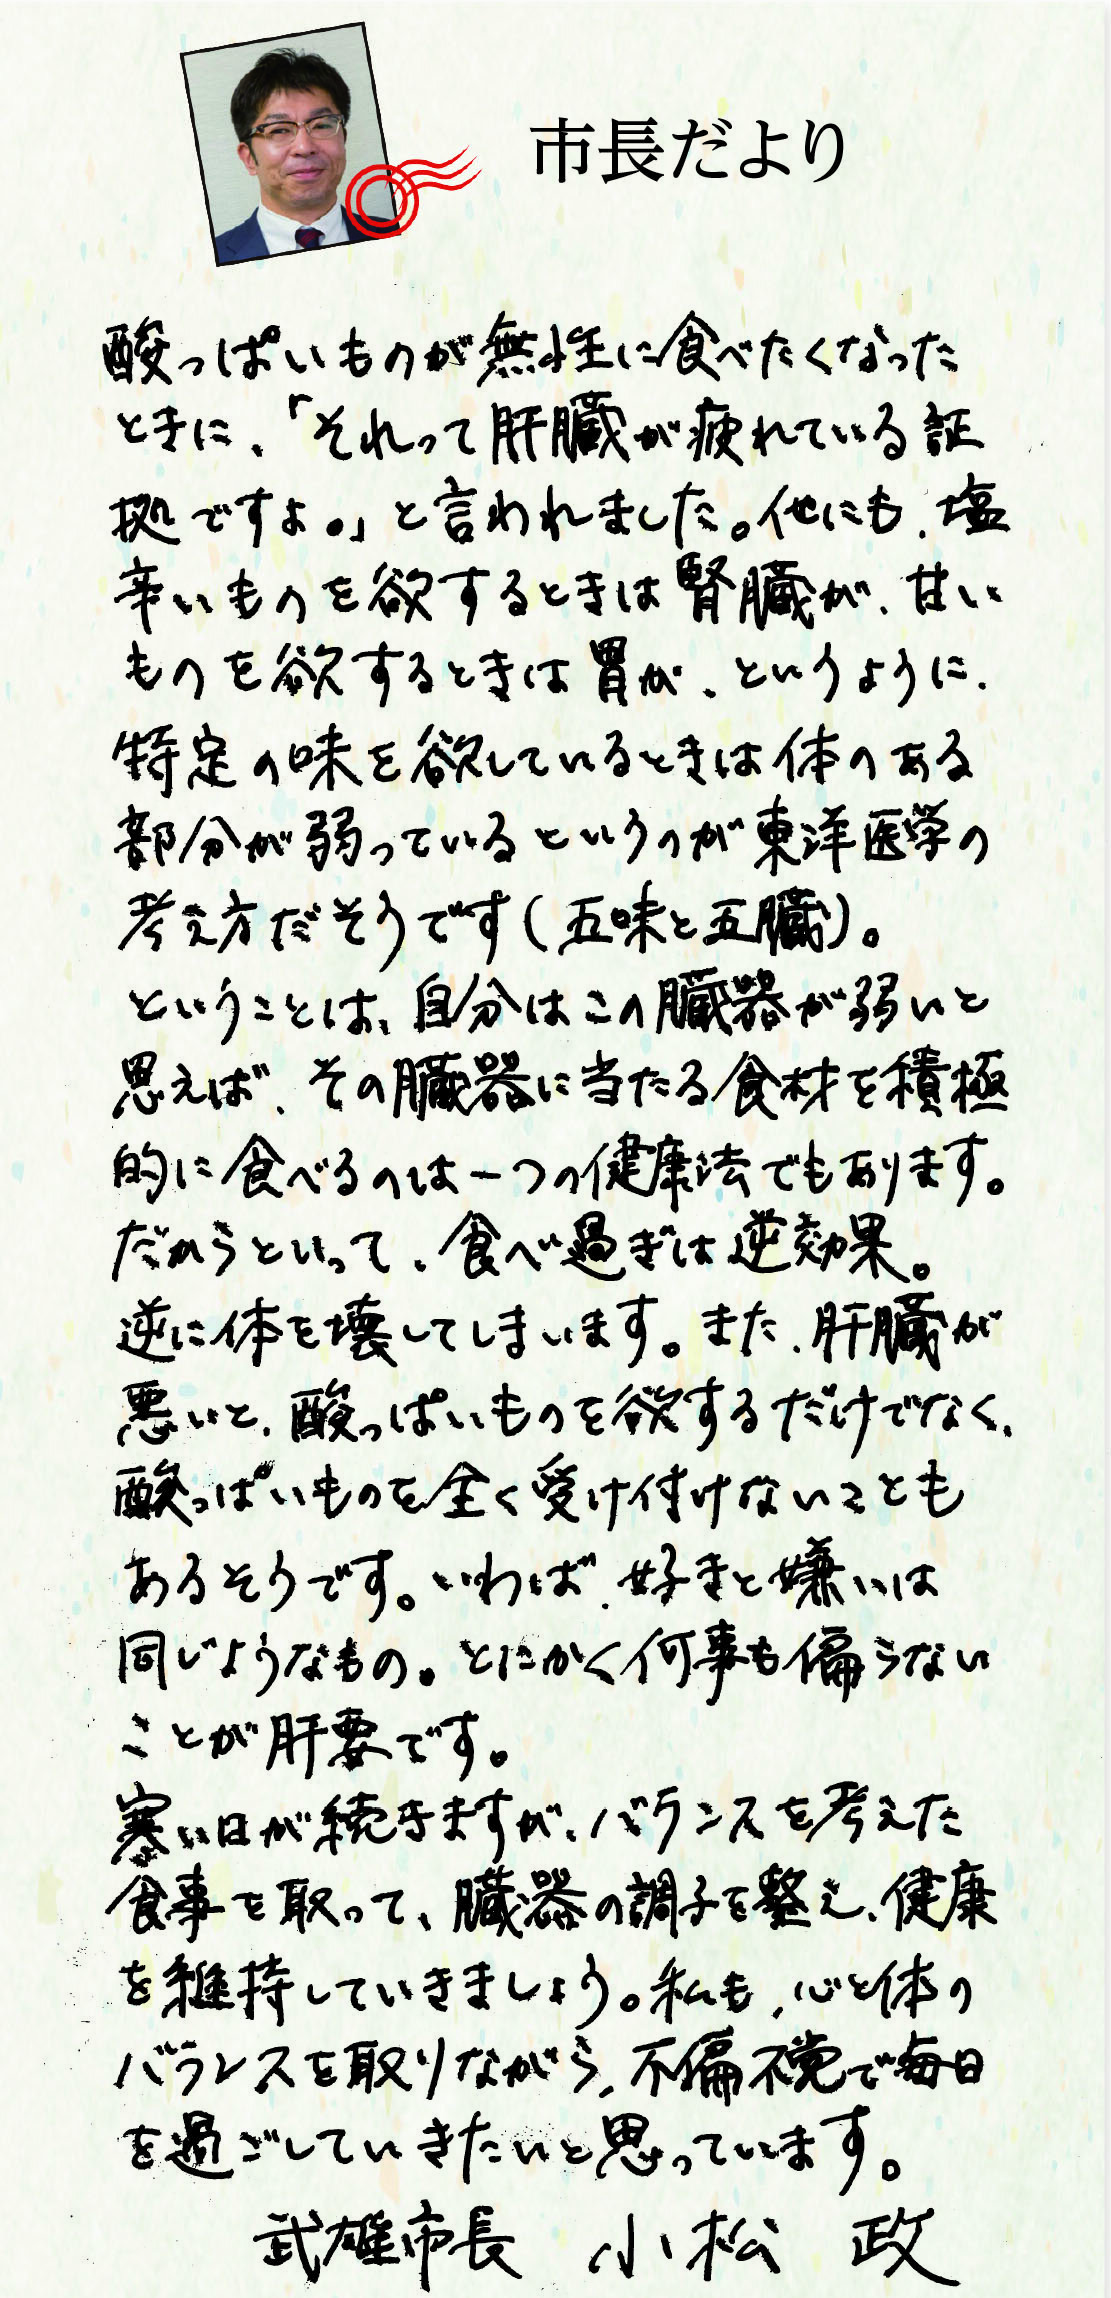 市長だより
酸っぱいものが無性に食べたくなった
ときに、「それって肝臓が疲れている証
拠ですよ。」と言われました。他にも、塩
辛いものを欲するときは腎臓が、甘い
ものを欲するときは胃が、というように、
特定の味を欲しているときは体のある
部分が弱っているというのが東洋医学の
考え方だそうです(五味と五臓)。
ということは、自分はこの臓器が弱いと
思えば、その臓器に当たる食材を積極
的に食べるのは一つの健康法でもあります。
だからといって、食べ過ぎは逆効果。
逆に体を壊してしまいます。また、肝臓が
悪いと、酸っぱいものを欲するだけでなく、
酸っぱいものを全く受け付けないことも
あるそうです。いわば、好きと嫌いは
同じようなもの。とにかく何事も偏らない
ことが肝要です。
寒い日が続きますが、バランスを考えた
食事を取って、臓器の調子を整え、健康
を維持していきましょう。私も、心と体の
バランスを取りながら、不偏不党で毎日
を過ごしていきたいと思っています。
武雄市長 小松 政